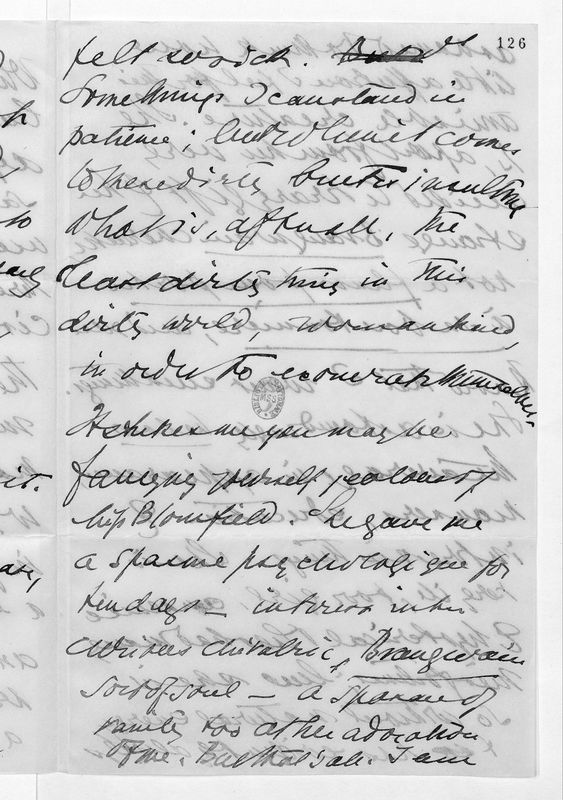 126
felt so sick.
Some things I can stand in
patience; but when it comes
to these dirty brutes insulting
what is, after all, the
least dirty thing in this
dirty world, womankind,
in order to exonerate themselves.
It strikes me you may be
fancying yourself jealous of
Miss Blomfield. She gave me
a spasme psychologique for
ten days — interest in her
curious chivalric, Brangwain
sort of soul — a spasm of
vanity too at her adoration
of me. But that's all. I am